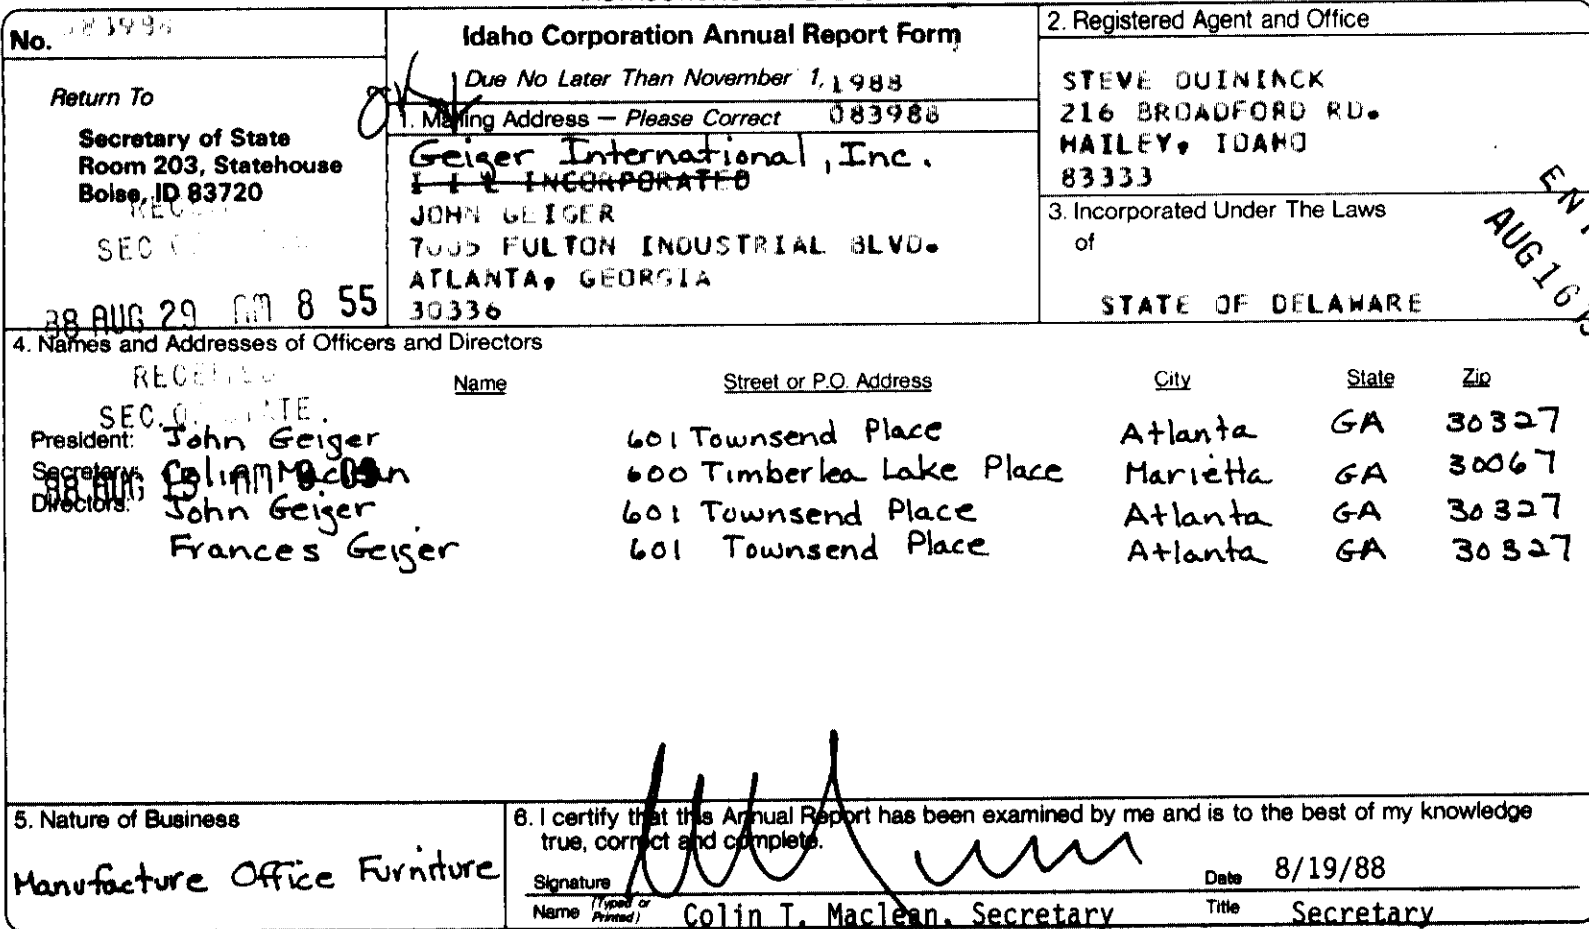 No. 083988
Return To
Secretary of State
Room 203, Statehouse
Boise, ID 83720
SEC
88 AUG 29 AM 8 55
Idaho Corporation Annual Report Form
Due No Later Than November 1, 1988
1. Mailing Address — Please Correct 083988
Geiger International, Inc.
INCORPORATED
JOHN GEIGER
7005 FULTON INDUSTRIAL BLVD.
ATLANTA, GEORGIA
30336
2. Registered Agent and Office
STEVE DUININCK
216 BROADFORD RD.
HAILEY, IDAHO
83333
3. Incorporated Under The Laws
of
STATE OF DELAWARE
AUG 16
4. Names and Addresses of Officers and Directors
RECEIVED
SEC. OF STATE
88 AUG 15 AM 9 09
Name Street or P.O. Address City State Zip
President: John Geiger 601 Townsend Place Atlanta GA 30327
Secretary: Colin Maclean 600 Timberlea Lake Place Marietta GA 30067
Directors: John Geiger 601 Townsend Place Atlanta GA 30327
Frances Geiger 601 Townsend Place Atlanta GA 30327
5. Nature of Business
Manufacture Office Furniture
6. I certify that this Annual Report has been examined by me and is to the best of my knowledge
true, correct and complete.
Signature Date 8/19/88
Name (Typed or Printed) Colin T. Maclean, Secretary Title Secretary